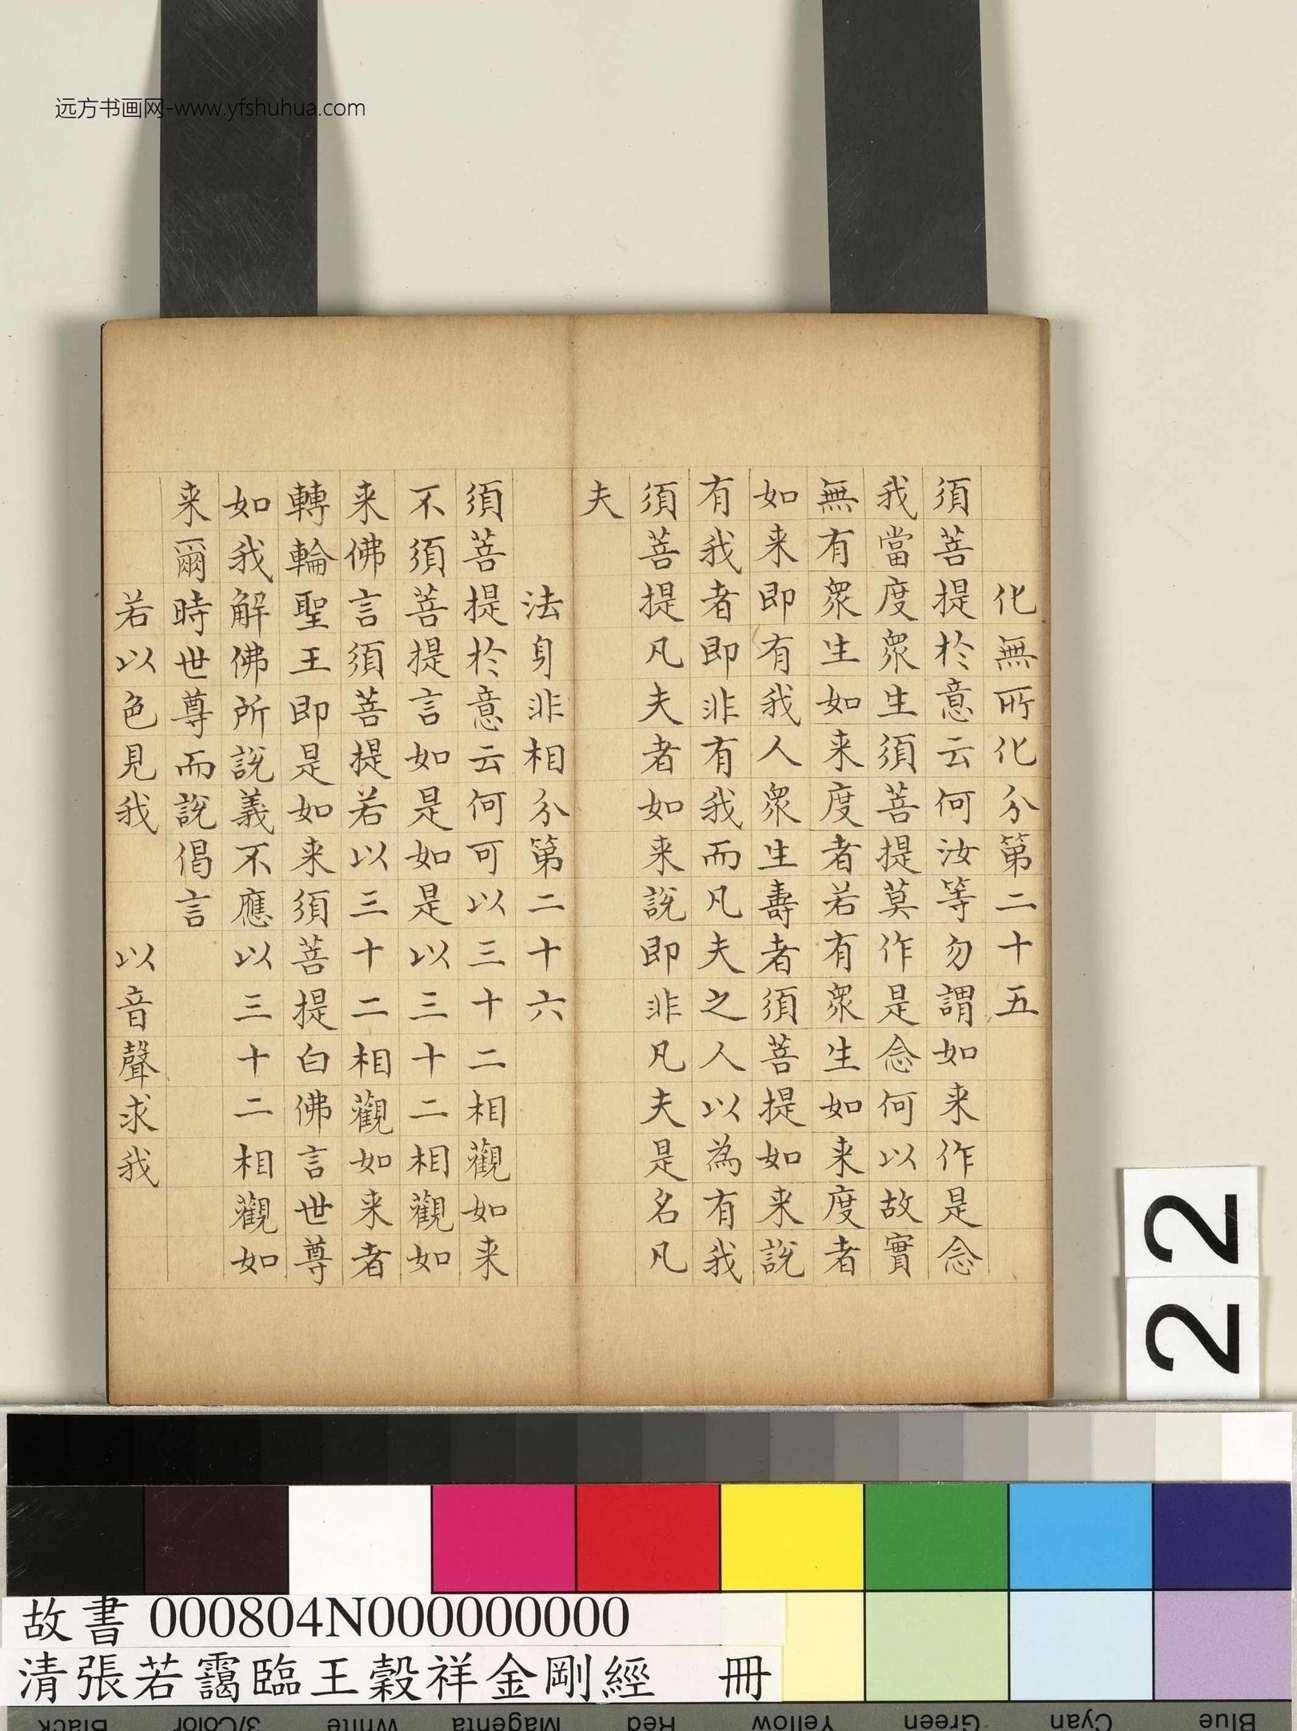 远方书画网-www.yfshuhua.com
化無所化分第二十五
須菩提於意云何汝等勿謂如来作是念
我當度眾生須菩提莫作是念何以故實
無有眾生如来度者若有眾生如来度者
如来即有我人眾生壽者須菩提如来說
有我者即非有我而凡夫之人以為有我
須菩提凡夫者如来說即非凡夫是名凡
夫
法身非相分第二十六
須菩提於意云何可以三十二相觀如来
不須菩提言如是如是以三十二相觀如
来佛言須菩提若以三十二相觀如来者
轉輪聖王即是如来須菩提白佛言世尊
如我解佛所說義不應以三十二相觀如
来爾時世尊而說偈言
若以色見我 以音聲求我
22
故書 000804N000000000
清張若靄臨王穀祥金剛經 冊
Black 3/Color White Magenta Red Yellow Green Cyan Blue